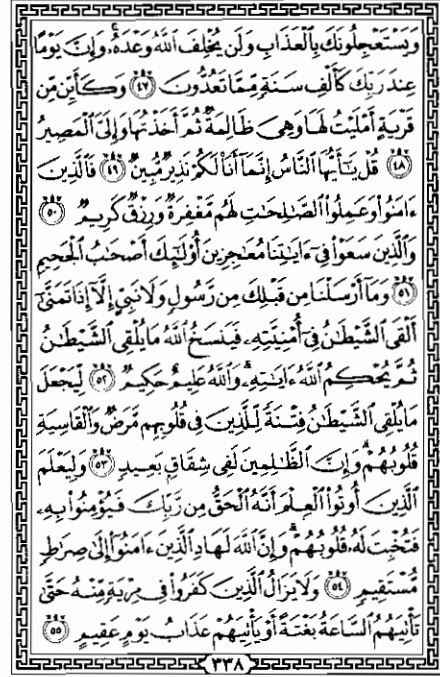 وَيَسْتَعْجِلُونَكَ بِٱلْعَذَابِ وَلَن يُخْلِفَ ٱللَّهُ وَعْدَهُۥۚ وَإِنَّ يَوْمًا
عِندَ رَبِّكَ كَأَلْفِ سَنَةٍ مِّمَّا تَعُدُّونَ ٤٧ وَكَأَيِّن مِّن
قَرْيَةٍ أَمْلَيْتُ لَهَا وَهِىَ ظَالِمَةٌ ثُمَّ أَخَذْتُهَا وَإِلَىَّ ٱلْمَصِيرُ
٤٨ قُلْ يَٰٓأَيُّهَا ٱلنَّاسُ إِنَّمَآ أَنَا۠ لَكُمْ نَذِيرٌ مُّبِينٌ ٤٩ فَٱلَّذِينَ
ءَامَنُوا۟ وَعَمِلُوا۟ ٱلصَّٰلِحَٰتِ لَهُم مَّغْفِرَةٌ وَرِزْقٌ كَرِيمٌ ٥٠
وَٱلَّذِينَ سَعَوْا۟ فِىٓ ءَايَٰتِنَا مُعَٰجِزِينَ أُو۟لَٰٓئِكَ أَصْحَٰبُ ٱلْجَحِيمِ
٥١ وَمَآ أَرْسَلْنَا مِن قَبْلِكَ مِن رَّسُولٍ وَلَا نَبِىٍّ إِلَّآ إِذَا تَمَنَّىٰٓ
أَلْقَى ٱلشَّيْطَٰنُ فِىٓ أُمْنِيَّتِهِۦ فَيَنسَخُ ٱللَّهُ مَا يُلْقِى ٱلشَّيْطَٰنُ
ثُمَّ يُحْكِمُ ٱللَّهُ ءَايَٰتِهِۦۗ وَٱللَّهُ عَلِيمٌ حَكِيمٌ ٥٢ لِّيَجْعَلَ
مَا يُلْقِى ٱلشَّيْطَٰنُ فِتْنَةً لِّلَّذِينَ فِى قُلُوبِهِم مَّرَضٌ وَٱلْقَاسِيَةِ
قُلُوبُهُمْۗ وَإِنَّ ٱلظَّٰلِمِينَ لَفِى شِقَاقٍۭ بَعِيدٍ ٥٣ وَلِيَعْلَمَ
ٱلَّذِينَ أُوتُوا۟ ٱلْعِلْمَ أَنَّهُ ٱلْحَقُّ مِن رَّبِّكَ فَيُؤْمِنُوا۟ بِهِۦ
فَتُخْبِتَ لَهُۥ قُلُوبُهُمْۗ وَإِنَّ ٱللَّهَ لَهَادِ ٱلَّذِينَ ءَامَنُوٓا۟ إِلَىٰ صِرَٰطٍ
مُّسْتَقِيمٍ ٥٤ وَلَا يَزَالُ ٱلَّذِينَ كَفَرُوا۟ فِى مِرْيَةٍ مِّنْهُ حَتَّىٰ
تَأْتِيَهُمُ ٱلسَّاعَةُ بَغْتَةً أَوْ يَأْتِيَهُمْ عَذَابُ يَوْمٍ عَقِيمٍ ٥٥
٣٣٨